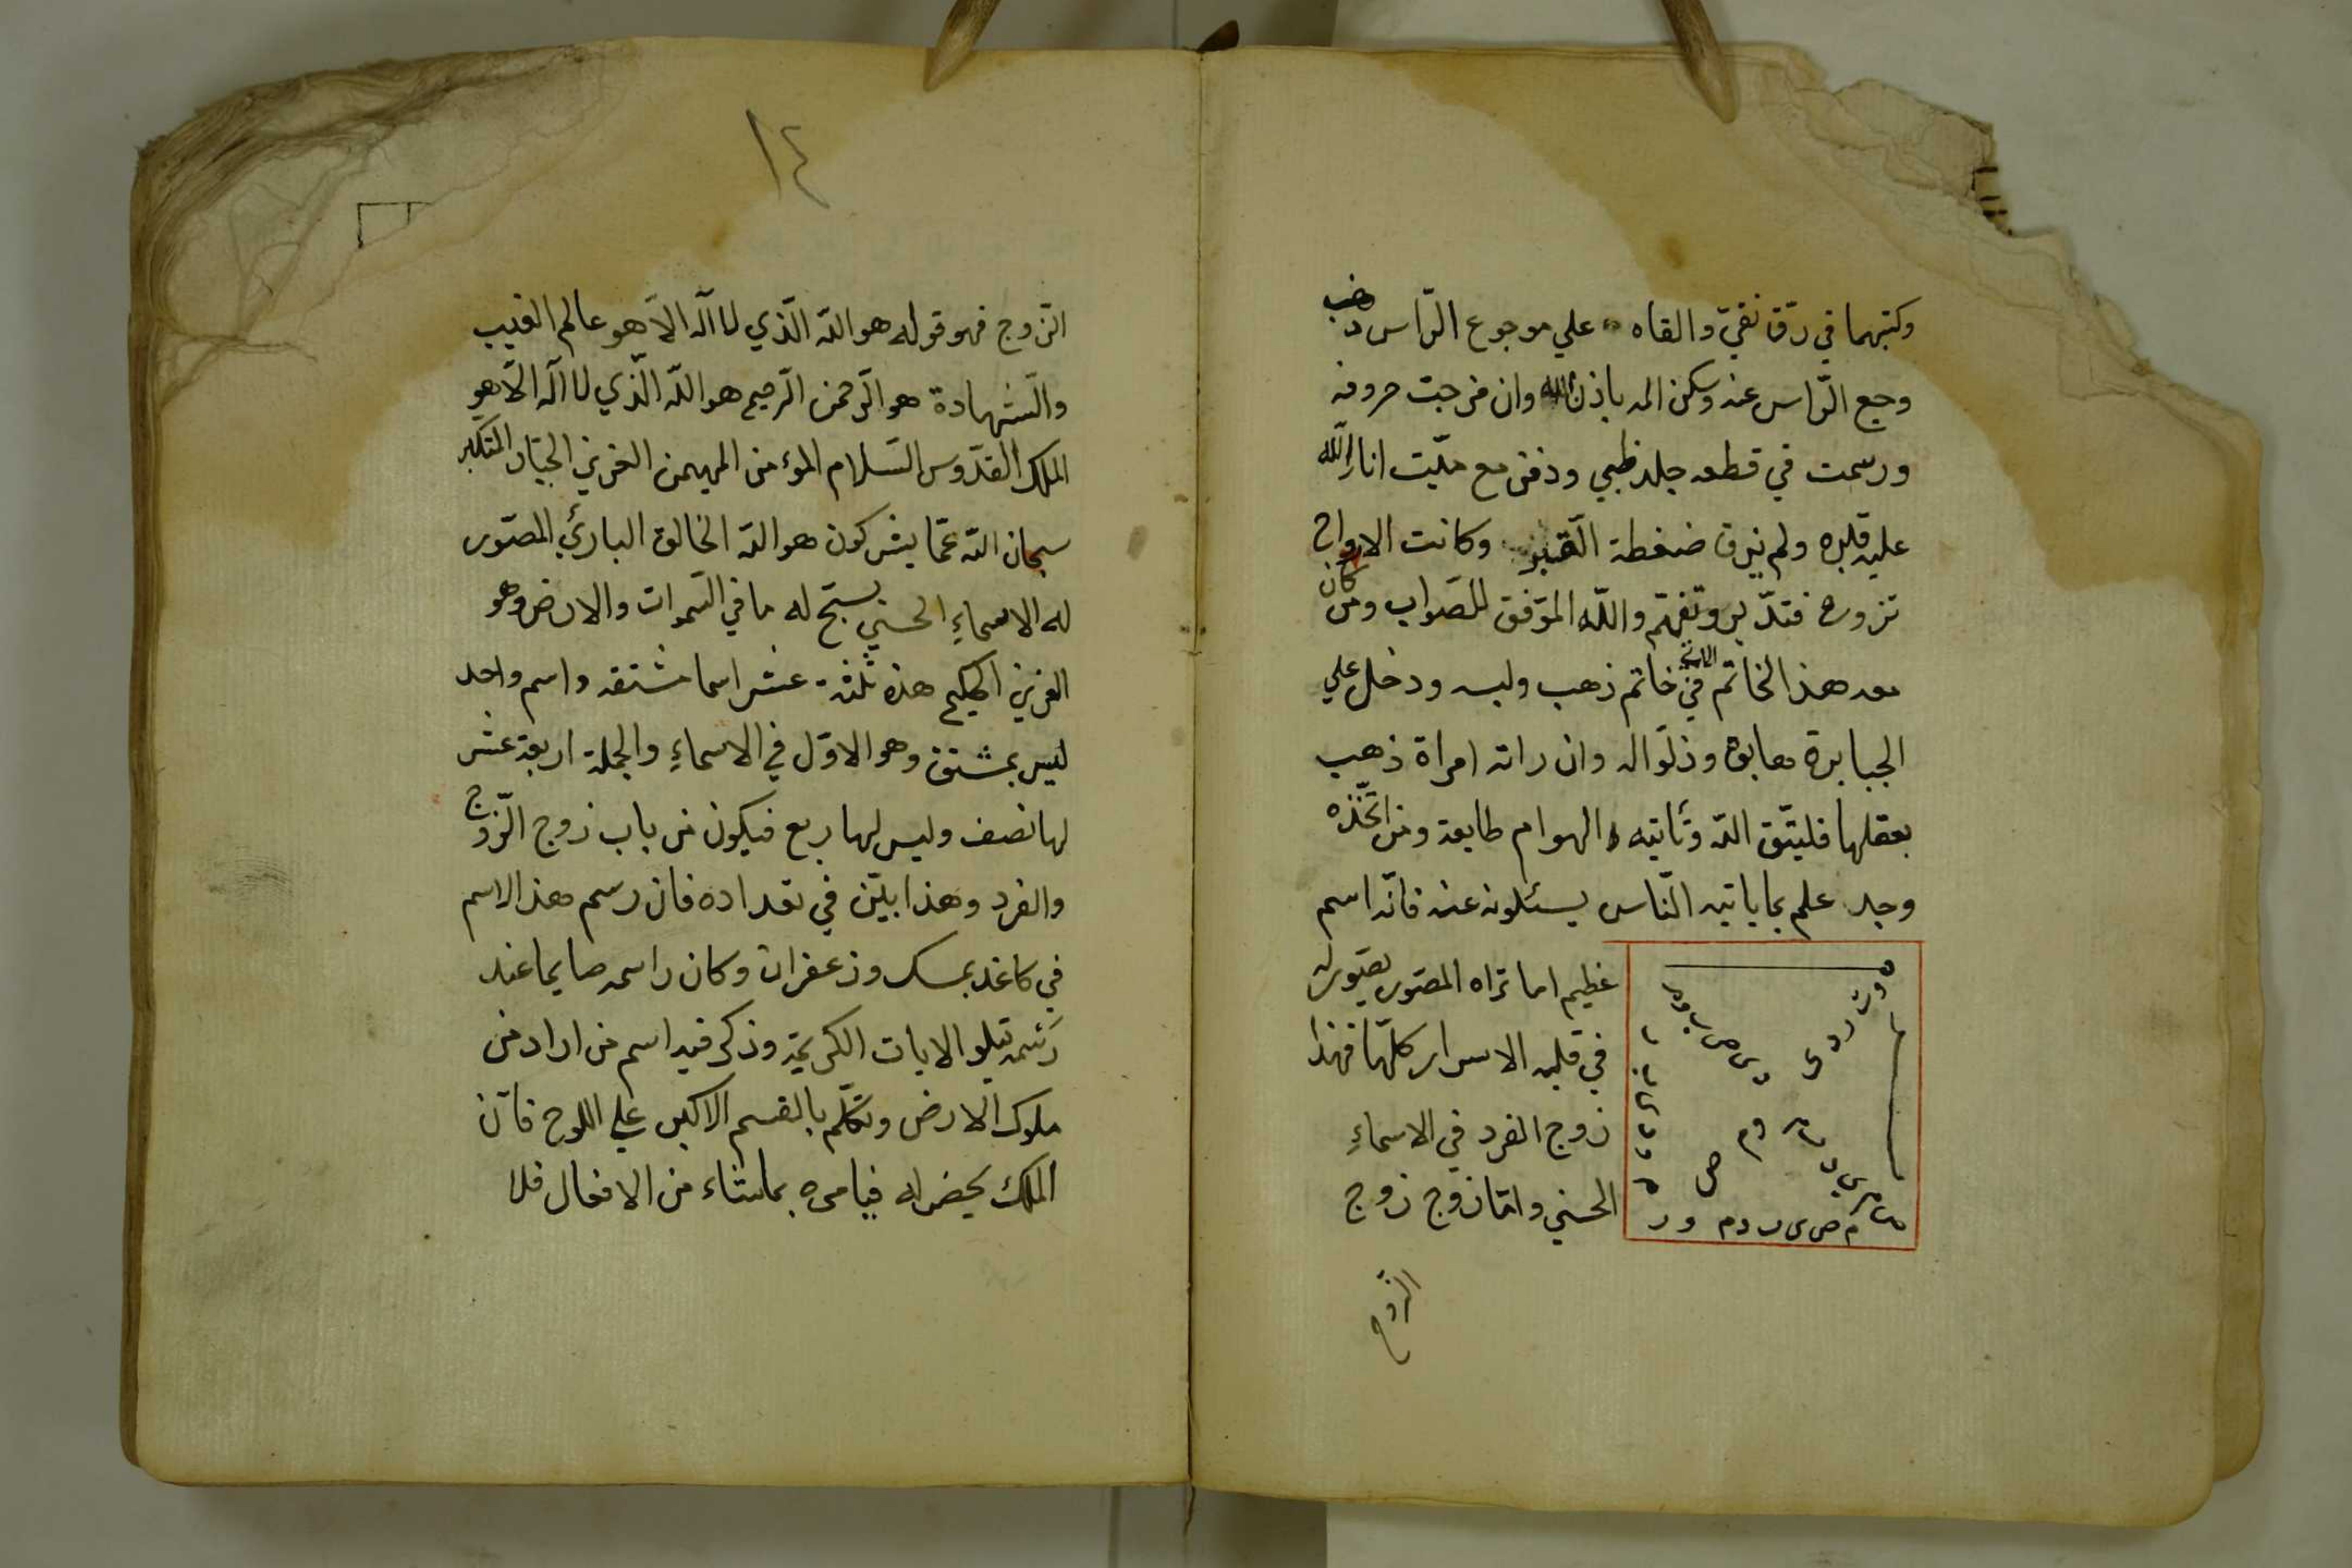 وكتبهما في رق نقيّ والقاه على موجوع الرّاس ذهب
وجع الرّاس عنه وسكن المه باذن الله وان خرجت حروفه
ورسمت في قطعه جلد ظبي ودفن مع ميّت انار الله
عليه قبره ولم يرق ضغطة القبر وكانت الارواح
تزوره فتدبر وتفهّم والله الموّفق للصّواب ومن كان
معه هذا الخاتم في خاتم ذهب ولبسه ودخل علي
الجبابرة هابوه وذلّوا له وان راته امراة ذهب
بعقلها فليتّق الله وتأتيه الهوام طايعة ومن اتخّذه
وجد علم بما ياتيه النّاس يسئلونه عنه فانّه اسم
عظيم اما تراه المصّور يصّور له
في قلبه الاسرار كلّها فهذا
زوج الفرد في الاسماءِ
الحسني وامّا زوج زوج
الزّوج
١٤
الزّوج فهو قوله هو اللّه الّذي لا اله الاّ هو عالم الغيب
والشّهادة هو الرّحمن الرّحيم هو اللّه الّذي لا اله الاّ هو
الملك القدّوس السّلام المؤمن المهيمن العزيز الجبّار المتكبر
سبحان اللّه عمّا يشركون هو اللّه الخالق البارئ المصّور
له الاسماءِ الحسني يسبّح له ما في السّموات والارض وهو
العزيز الحكيم هذه ثلثة عشر اسما مشتقه واسم واحد
ليس بمشتق وهو الاوّل في الاسماءِ والجملة اربعة عشر
لها نصف وليس لها ربع فيكون من باب زوج الزّوج
والفرد وهذا بيّن في تعداده فان رسم هذا الاسم
في كاغد بمسك وزعفران وكان راسمه صايما عند
رسمه يتلو الايات الكريمة وذكر فيه اسم من اراد من
ملوك الارض وتكلّم بالقسم الاكبر علي اللوح فانّ
الملك يحضر له فيامره بما يشاء من الافعال فلا